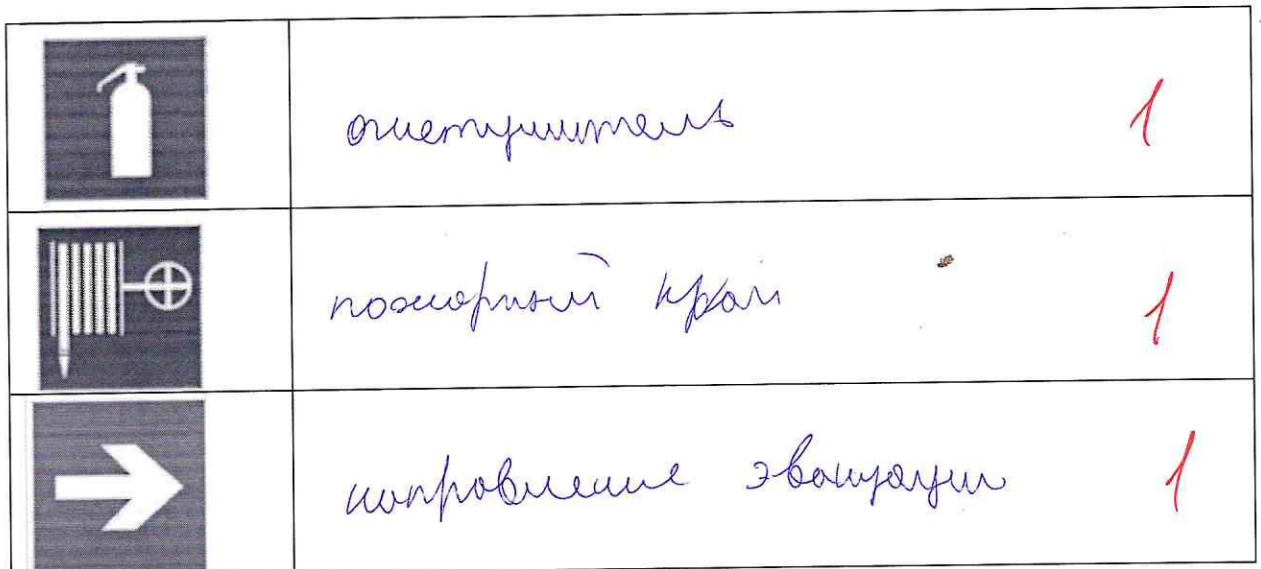 огнетушитель 1
пожарный кран 1
направление эвакуации 1